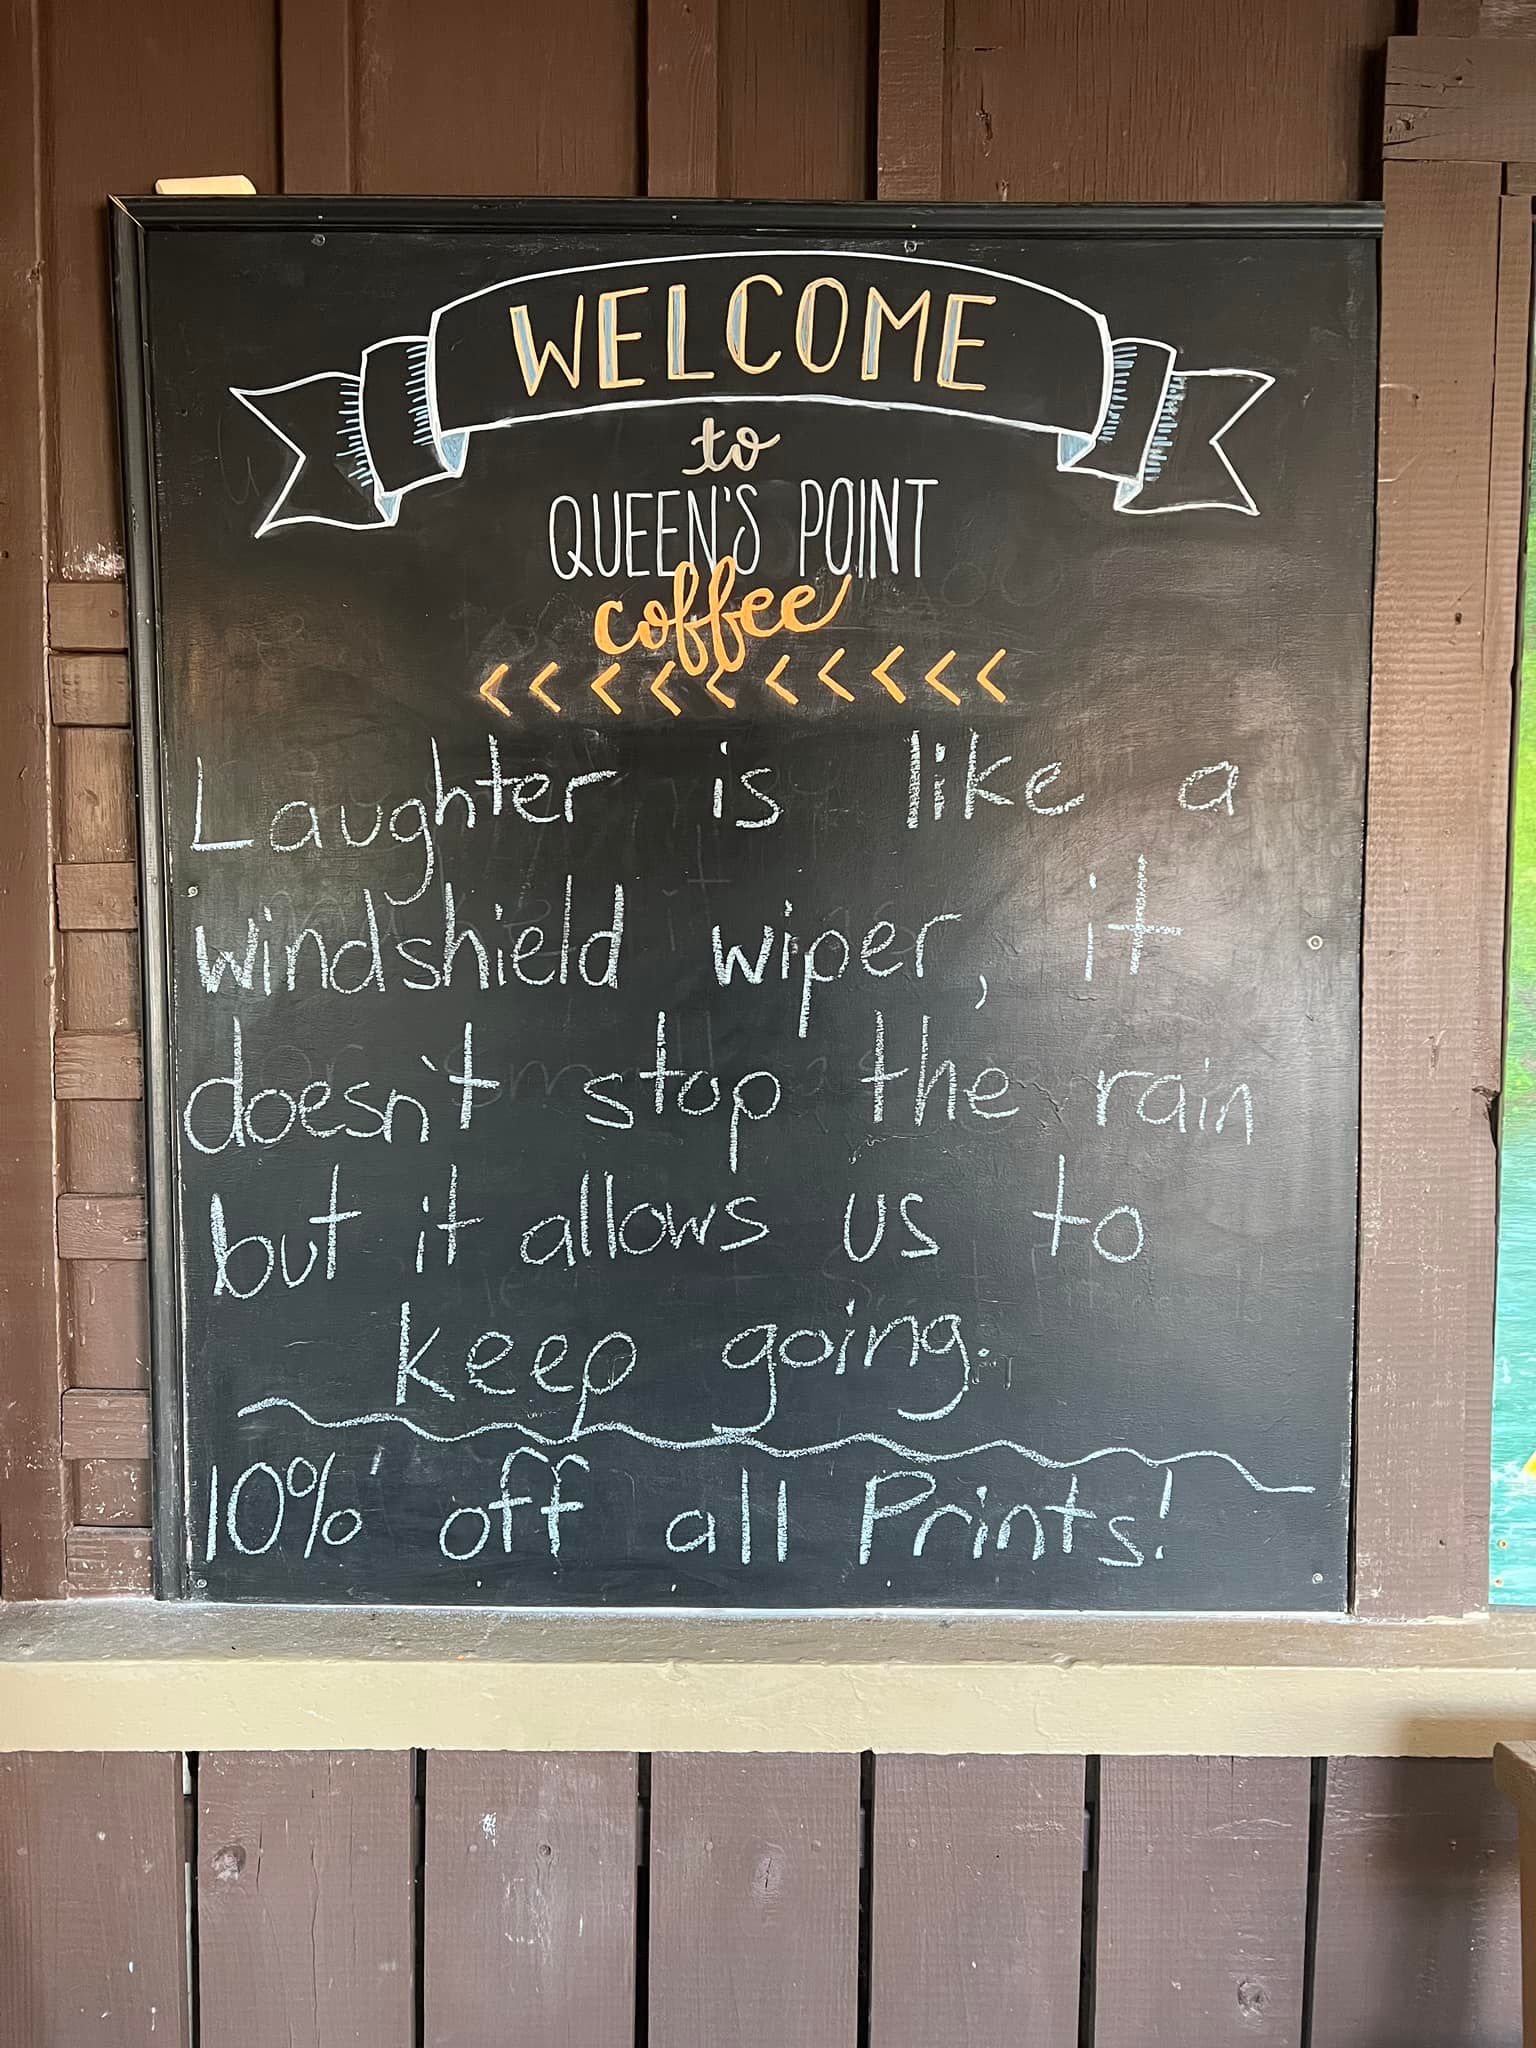 WELCOME
to
QUEEN'S POINT
coffee
<<<<<<<<<<
Laughter is like a
windshield wiper, it
doesn't stop the rain
but it allows us to
keep going.
10% off all Prints!